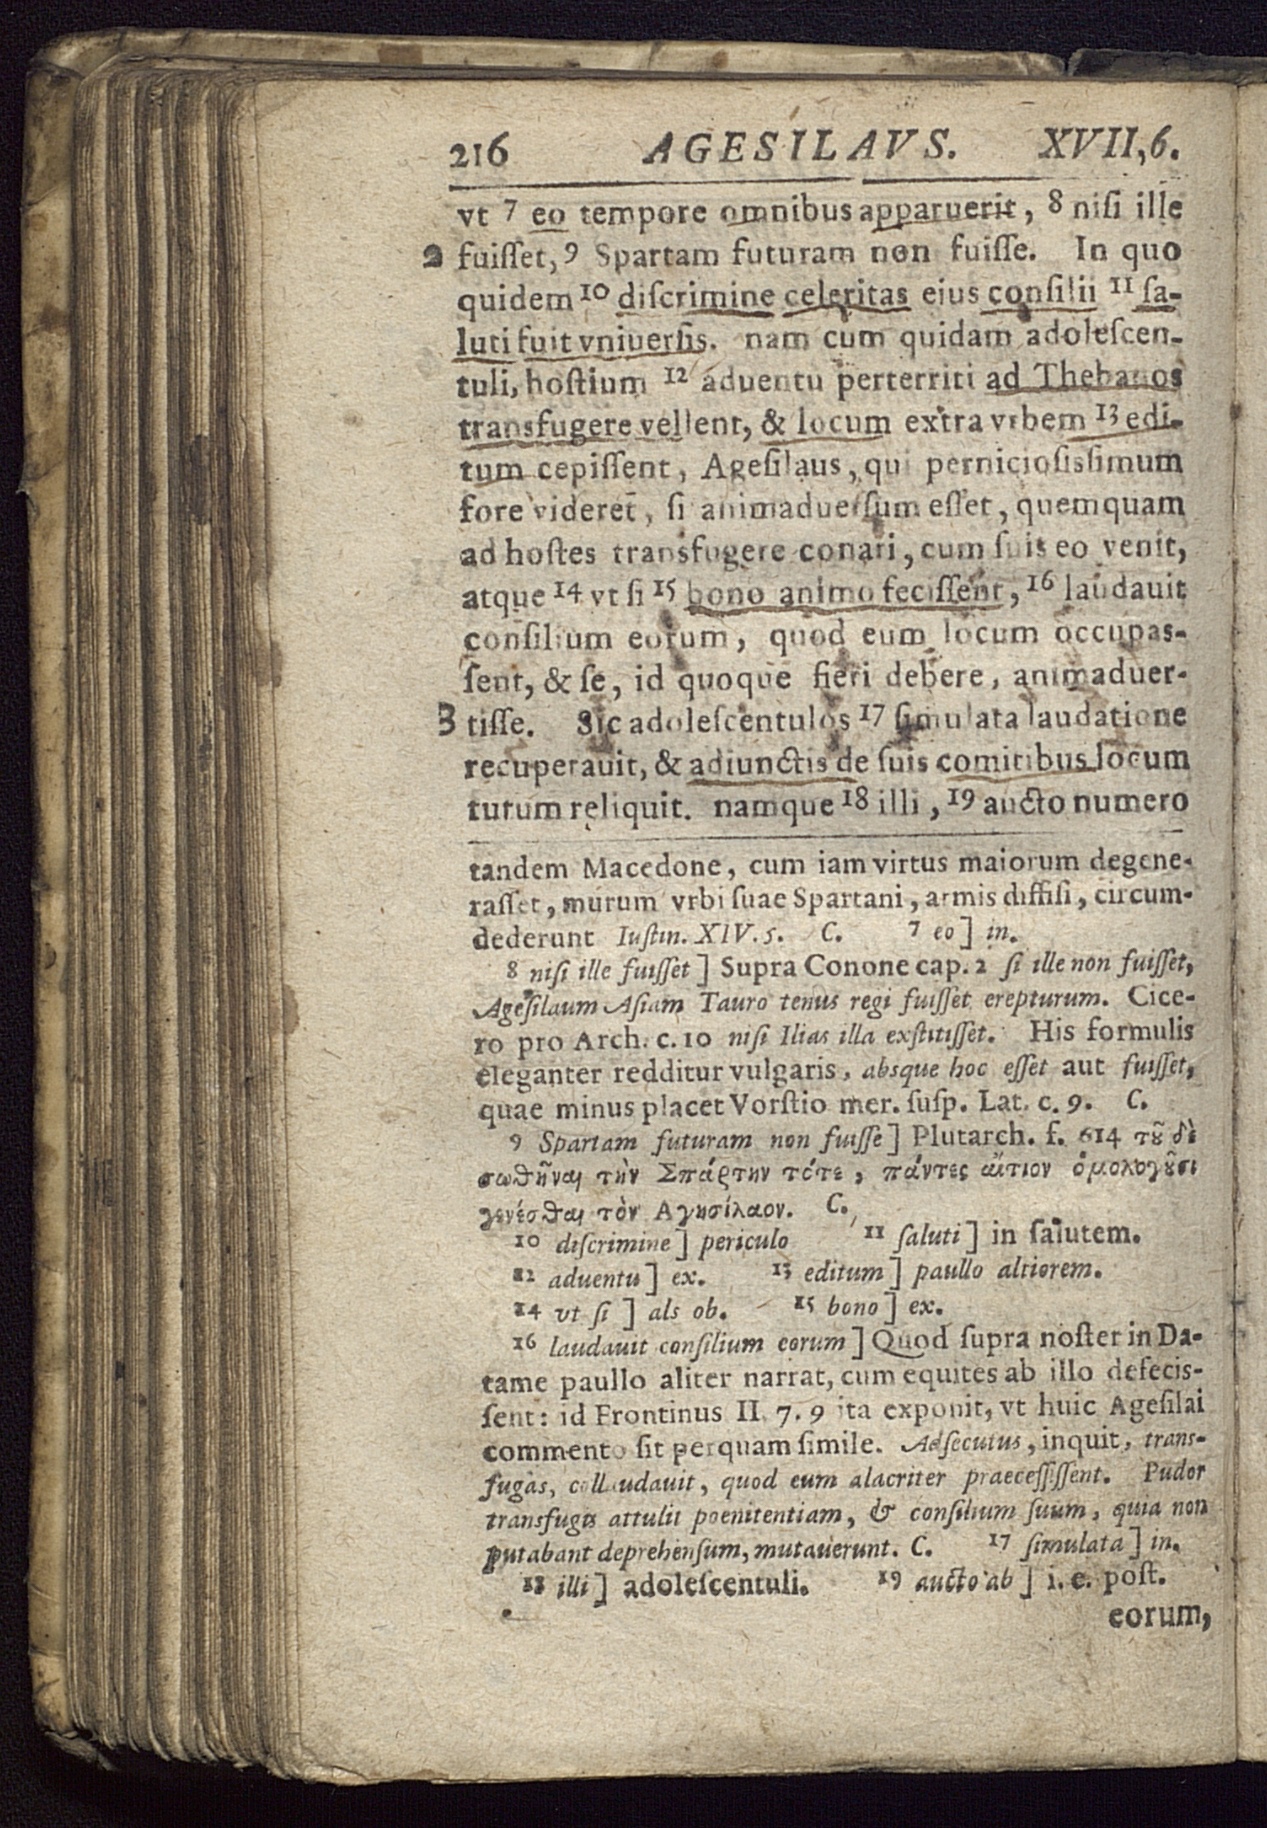 216 AGESILAVS. XVII,6.
vt 7 eo tempore omnibus apparuerit, 8 niſi ille
2 fuiſſet, 9 Spartam futuram non fuiſſe. In quo
quidem 10 diſcrimine celeritas eius conſilii 11 ſa-
luti fuit vniuerſis. nam cum quidam adoleſcen-
tuli, hoſtium 12 aduentu perterriti ad Thebanos
transfugere vellent, & locum extra vrbem 13 edi-
tum cepiſſent, Ageſilaus, qui pernicioſisſimum
fore videret, ſi animaduerſum eſſet, quemquam
ad hoſtes transfugere conari, cum ſuis eo venit,
atque 14 vt ſi 15 bono animo feciſſent, 16 laudauit
conſilium eorum, quod eum locum occupas-
ſent, & ſe, id quoque fieri debere, animaduer-
3 tiſſe. Sic adoleſcentulos 17 ſimulata laudatione
recuperauit, & adiunctis de ſuis comitibus locum
tutum reliquit. namque 18 illi, 19 aucto numero
tandem Macedone, cum iam virtus maiorum degene-
raſſet, murum vrbi ſuae Spartani, armis diffiſi, circum-
dederunt Iuſtin. XIV. 5. C. 7 eo] in.
8 niſi ille fuiſſet] Supra Conone cap. 2 ſi ille non fuiſſet,
Ageſilaum Aſiam Tauro tenus regi fuiſſet erepturum. Cice-
ro pro Arch. c. 10 niſi Ilias illa exſtitiſſet. His formulis
eleganter redditur vulgaris, absque hoc eſſet aut fuiſſet,
quae minus placet Vorſtio mer. ſuſp. Lat. c. 9. C.
9 Spartam futuram non fuiſſe] Plutarch. f. 614 τοῦ δὲ
σωθῆναι τὴν Σπάρτην τότε, πάντες αἴτιον ὁμολογοῦσι
γενέσθαι τὸν Αγησίλαον. C.
10 diſcrimine] periculo 11 ſaluti] in ſalutem.
12 aduentu] ex. 13 editum] paullo altiorem.
14 vt ſi] als ob. 15 bono] ex.
16 laudauit conſilium eorum] Quod ſupra noſter in Da-
tame paullo aliter narrat, cum equites ab illo defecis-
ſent: id Frontinus II. 7. 9 ita exponit, vt huic Ageſilai
commento ſit perquam ſimile. Adſecutus, inquit, trans-
fugas, collaudauit, quod eum alacriter praeceſſiſſent. Pudor
transfugis attulit poenitentiam, & conſilium ſuum, quia non
putabant deprehenſum, mutauerunt. C. 17 ſimulata] in.
18 illi] adoleſcentuli. 19 aucto ab] i. e. poſt.
eorum,